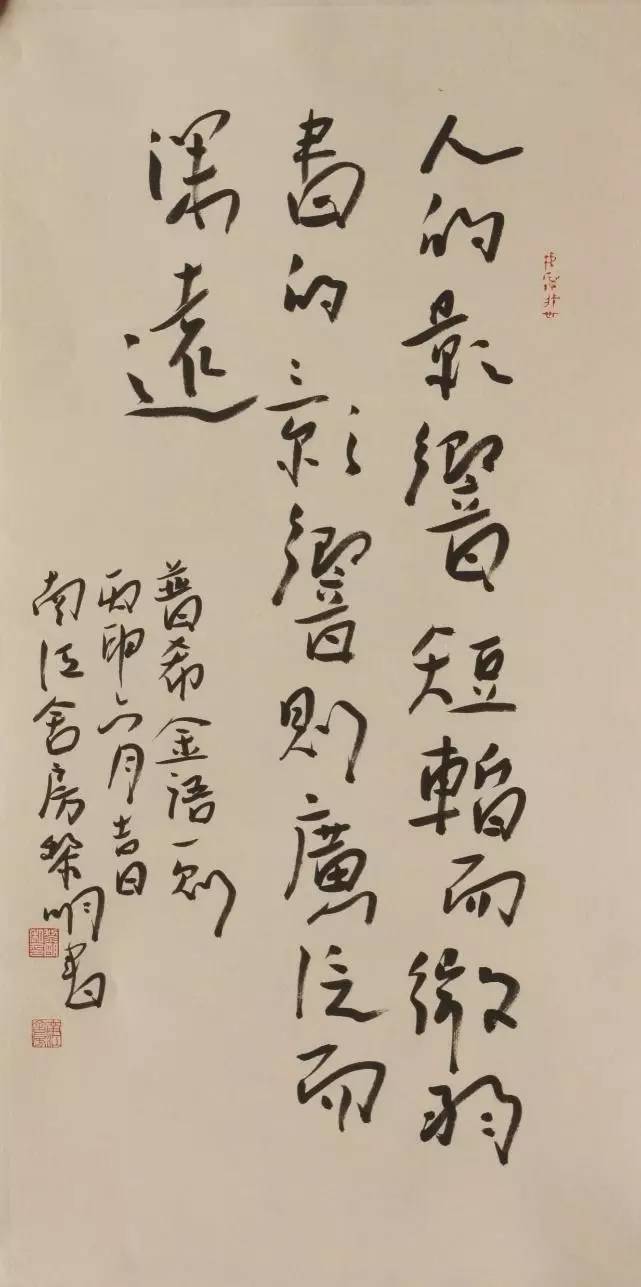 人的影響短暫而微弱
書的影響則廣泛而
深遠
普希金語一則
丙申六月吉日
南江舍房黎明書